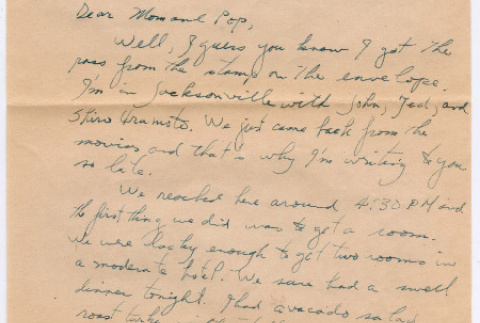 Dear Mom and Pop,
Well, I guess you know I got the
pass from the stamp on the envelope.
I'm in Jacksonville with John, Ted, and
Shiro We just came back from the
movies and that's why I'm writing to you
so late.
We reached here around 4:30 PM and
the first thing we did was to get a room.
We were lucky enough to get two rooms in
a moderate hotel. We sure had a swell
dinner tonight. I had avocado salad
roast